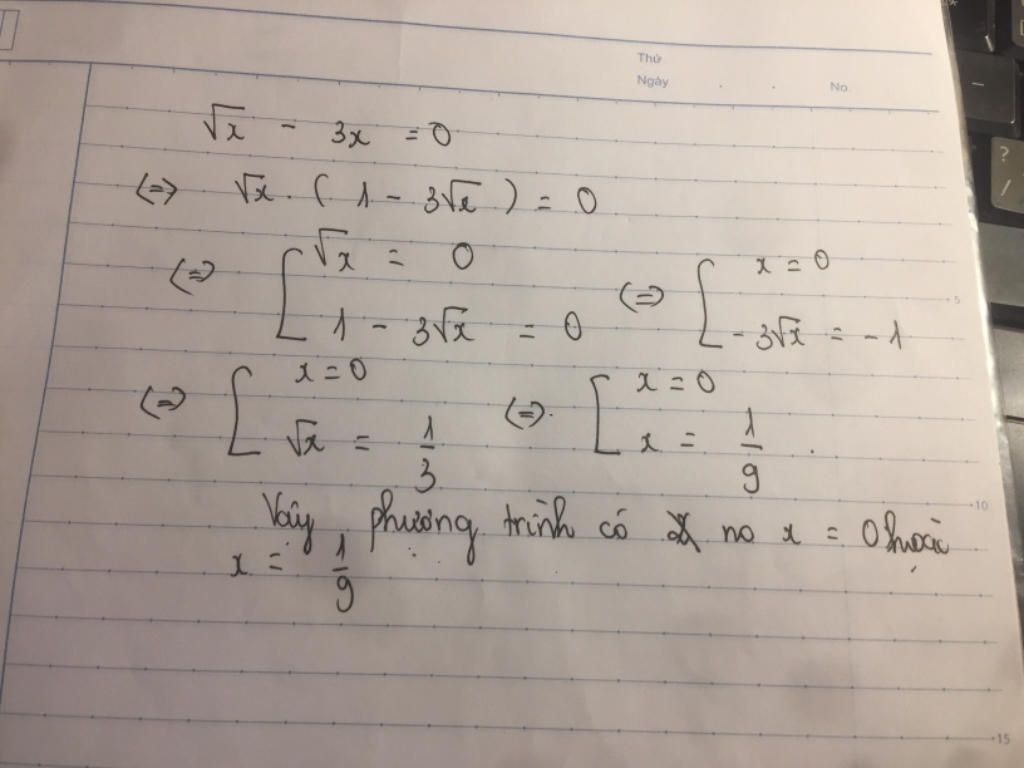 Thứ
Ngày No.
√x - 3x = 0
(=) √x . ( 1 - 3√x ) = 0
(=) [ √x = 0 (=) [ x = 0
1 - 3√x = 0 - 3√x = - 1
5
(=) [ x = 0 (=) [ x = 0
√x = 1/3 x = 1/9 .
10
Vậy phương trình có no x = 0 hoặc
x = 1/9
15
? /